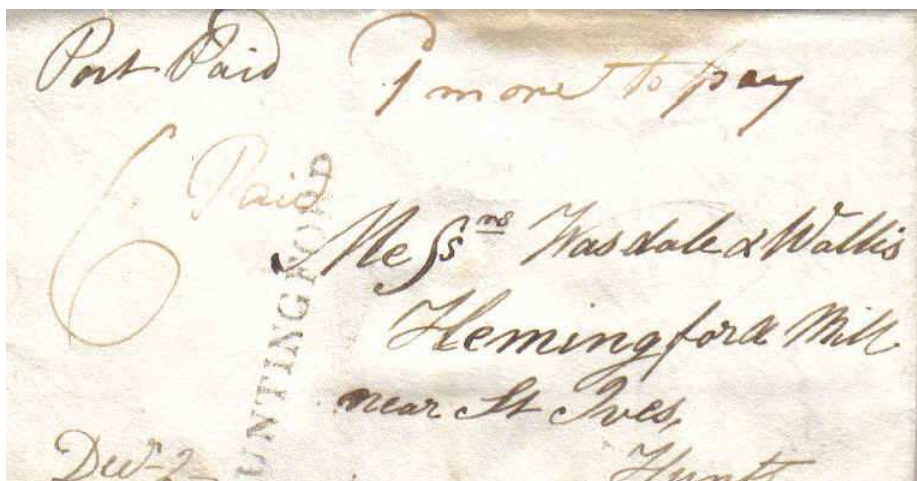 Post Paid 1 more to pay
6 Paid
UNTINGFORD
Messrs Wasdale & Wallis
Hemingford Mill
near St Ives,
Hunts